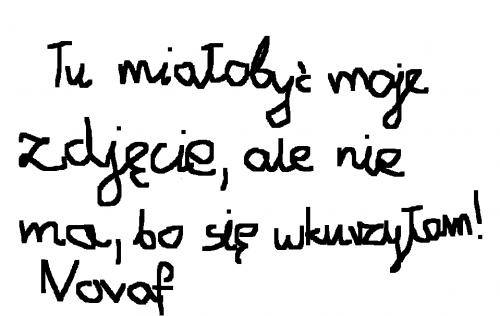 Tu miałobyć moje
zdjęcie, ale nie
ma, bo się wkurzyłam!
Novaf